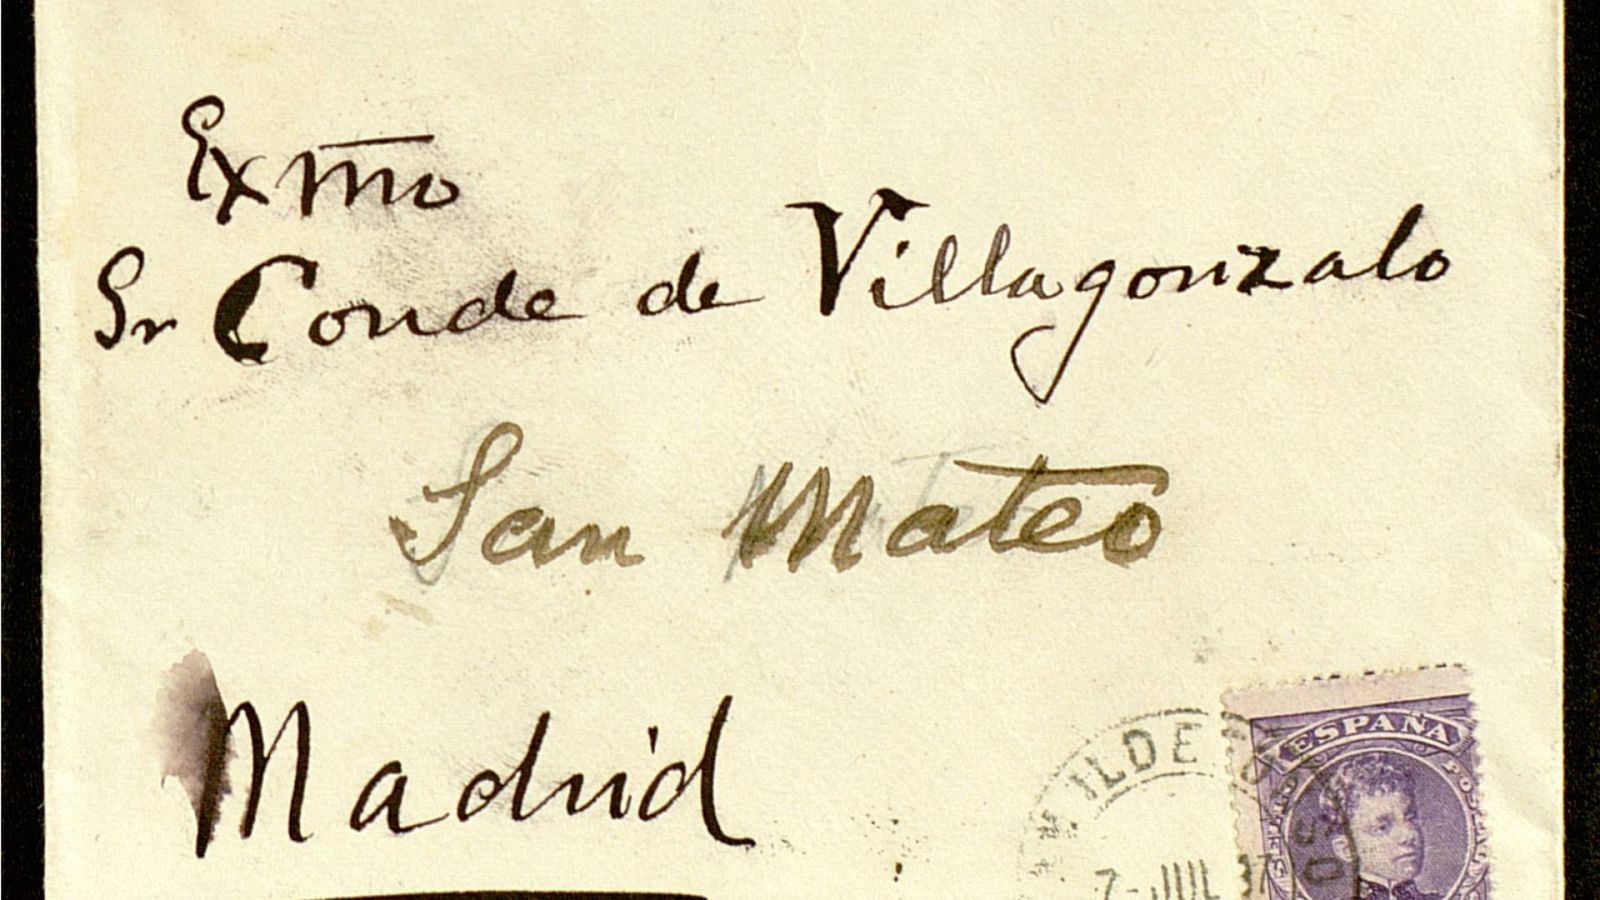 Exmo
Sr Conde de Villagonzalo
San Mateo
Madrid
ESPAÑA
ILDE
7-JUL